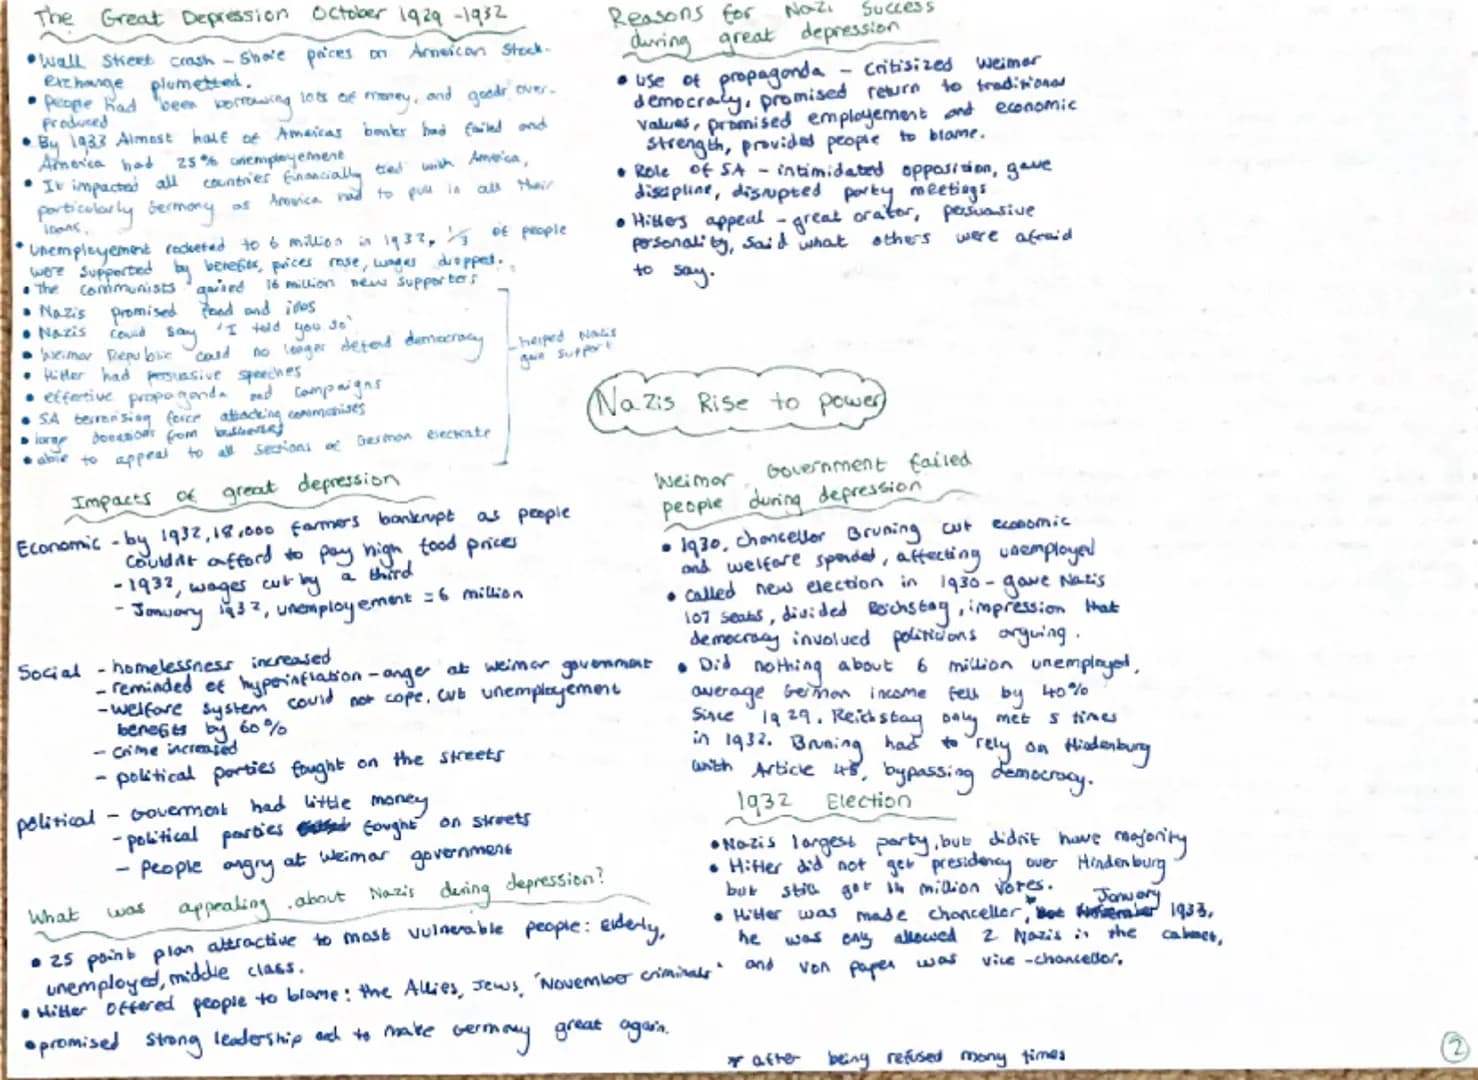 The Great Depression October 1929 - 1932
• Wall Street crash - Share prices on American Stock-
exchange plumetted.
• People had been borrowing lots of money, and goods over-
produced
• By 1933 Almost half of Americas banks had failed and
America had 25% unemployement
• It impacted all countries financially tied with America,
particularly Germany as America had to pull in all their
loans.
• Unemployement rocketed to 6 million in 1932, 1/3 of people
were supported by benefits, prices rose, wages dropped.
• The communists gained 16 million new supporters
• Nazis promised food and jobs
• Nazis could say 'I told you so'
• Weimar Republic could no longer defend democracy
• Hitler had persuasive speeches
• effective propaganda and campaigns
• SA terrorising force attacking communises
• large donations from businesses
• able to appeal to all sections of German electrate
- helped Nazis
gain support
Impacts of great depression
Economic - by 1932, 18,000 farmers bankrupt as people
couldnt afford to pay high food prices
- 1932, wages cut by a third
- January 1932, unemployement = 6 million
Social - homelessness increased
- reminded of hyperinflation - anger at weimar government
- welfare system could not cope, cut unemployement
benefits by 60%
- crime increased
- political parties fought on the streets
political - Goverment had little money
- political parties fought on streets
- People angry at Weimar government
What was appealing about Nazis during depression?
• 25 point plan attractive to most vulnerable people: Elderly,
unemployed, middle class.
• Hitler offered people to blame: the Allies, Jews, 'November criminals'
• promised strong leadership and to make Germany great again.
Reasons for Nazi Success
during great depression
• Use of propaganda - Critisized Weimar
democracy, promised return to traditional
values, promised employement and economic
strength, provided people to blame.
• Role of SA - intimidated opposition, gave
discipline, disrupted party meetings
• Hitlers appeal - great orator, persuasive
personality, said what others were afraid
to say.
Nazis Rise to power
Weimar Government failed
people during depression
• 1930, chancellor Bruning cut economic
and welfare spended, affecting unemployed
• called new election in 1930 - gave Nazis
107 seats, divided Reichstag, impression that
democracy involved politicians arguing.
• Did nothing about 6 million unemployed,
average German income fell by 40%
Since 1929. Reichstag only met 5 times
in 1932. Bruning had to rely on Hindenburg
with Article 48, bypassing democracy.
1932 Election
• Nazis largest party, but didn't have majority
• Hitler did not get presidency over Hindenburg
but still got 14 million votes.
• Hitler was made chancellor,* January 1933,
he was only allowed 2 Nazis in the cabinet,
and von papen was vice-chancellor.
* after being refused many times
2